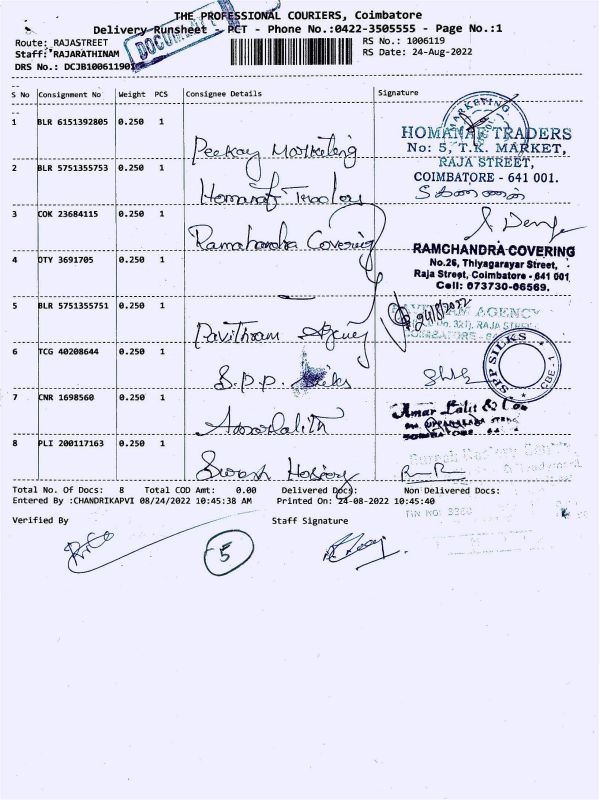 THE PROFESSIONAL COURIERS, Coimbatore
Delivery Runsheet - PCT - Phone No.:0422-3505555 - Page No.:1
Route: RAJASTREET
RS No.: 1006119
Staff: RAJARATHINAM
RS Date: 24-Aug-2022
DRS No.: DCJB10061190
S No Consignment No Weight PCS Consignee Details Signature
1 BLR 6151392805 0.250 1 Peekay Marketing
MARKETING
HOMANAF TRADERS
No: 5, T.K. MARKET,
RAJA STREET,
COIMBATORE - 641 001.
2 BLR 5751355753 0.250 1 Homanaf Traders
3 COK 23684115 0.250 1 Ramachandra Covering
RAMCHANDRA COVERING
No.26, Thiyagarayar Street,
Raja Street, Coimbatore - 641 001
Cell: 073730-06569.
4 OTY 3691705 0.250 1
5 BLR 5751355751 0.250 1 Pavithram Agency
24/8/2022
AGENCY
RAJA STREET
6 TCG 40208644 0.250 1 S.P.P. Silks
SPP SILKS
CBE - 1
7 CNR 1698560 0.250 1 Amarlalith
Amar Lalit & Co
8 PLI 200117163 0.250 1 Suresh Hosiery
Total No. Of Docs: 8 Total COD Amt: 0.00 Delivered Docs: Non Delivered Docs:
Entered By :CHANDRIKAPVI 08/24/2022 10:45:38 AM Printed On: 24-08-2022 10:45:40
Verified By Staff Signature
5